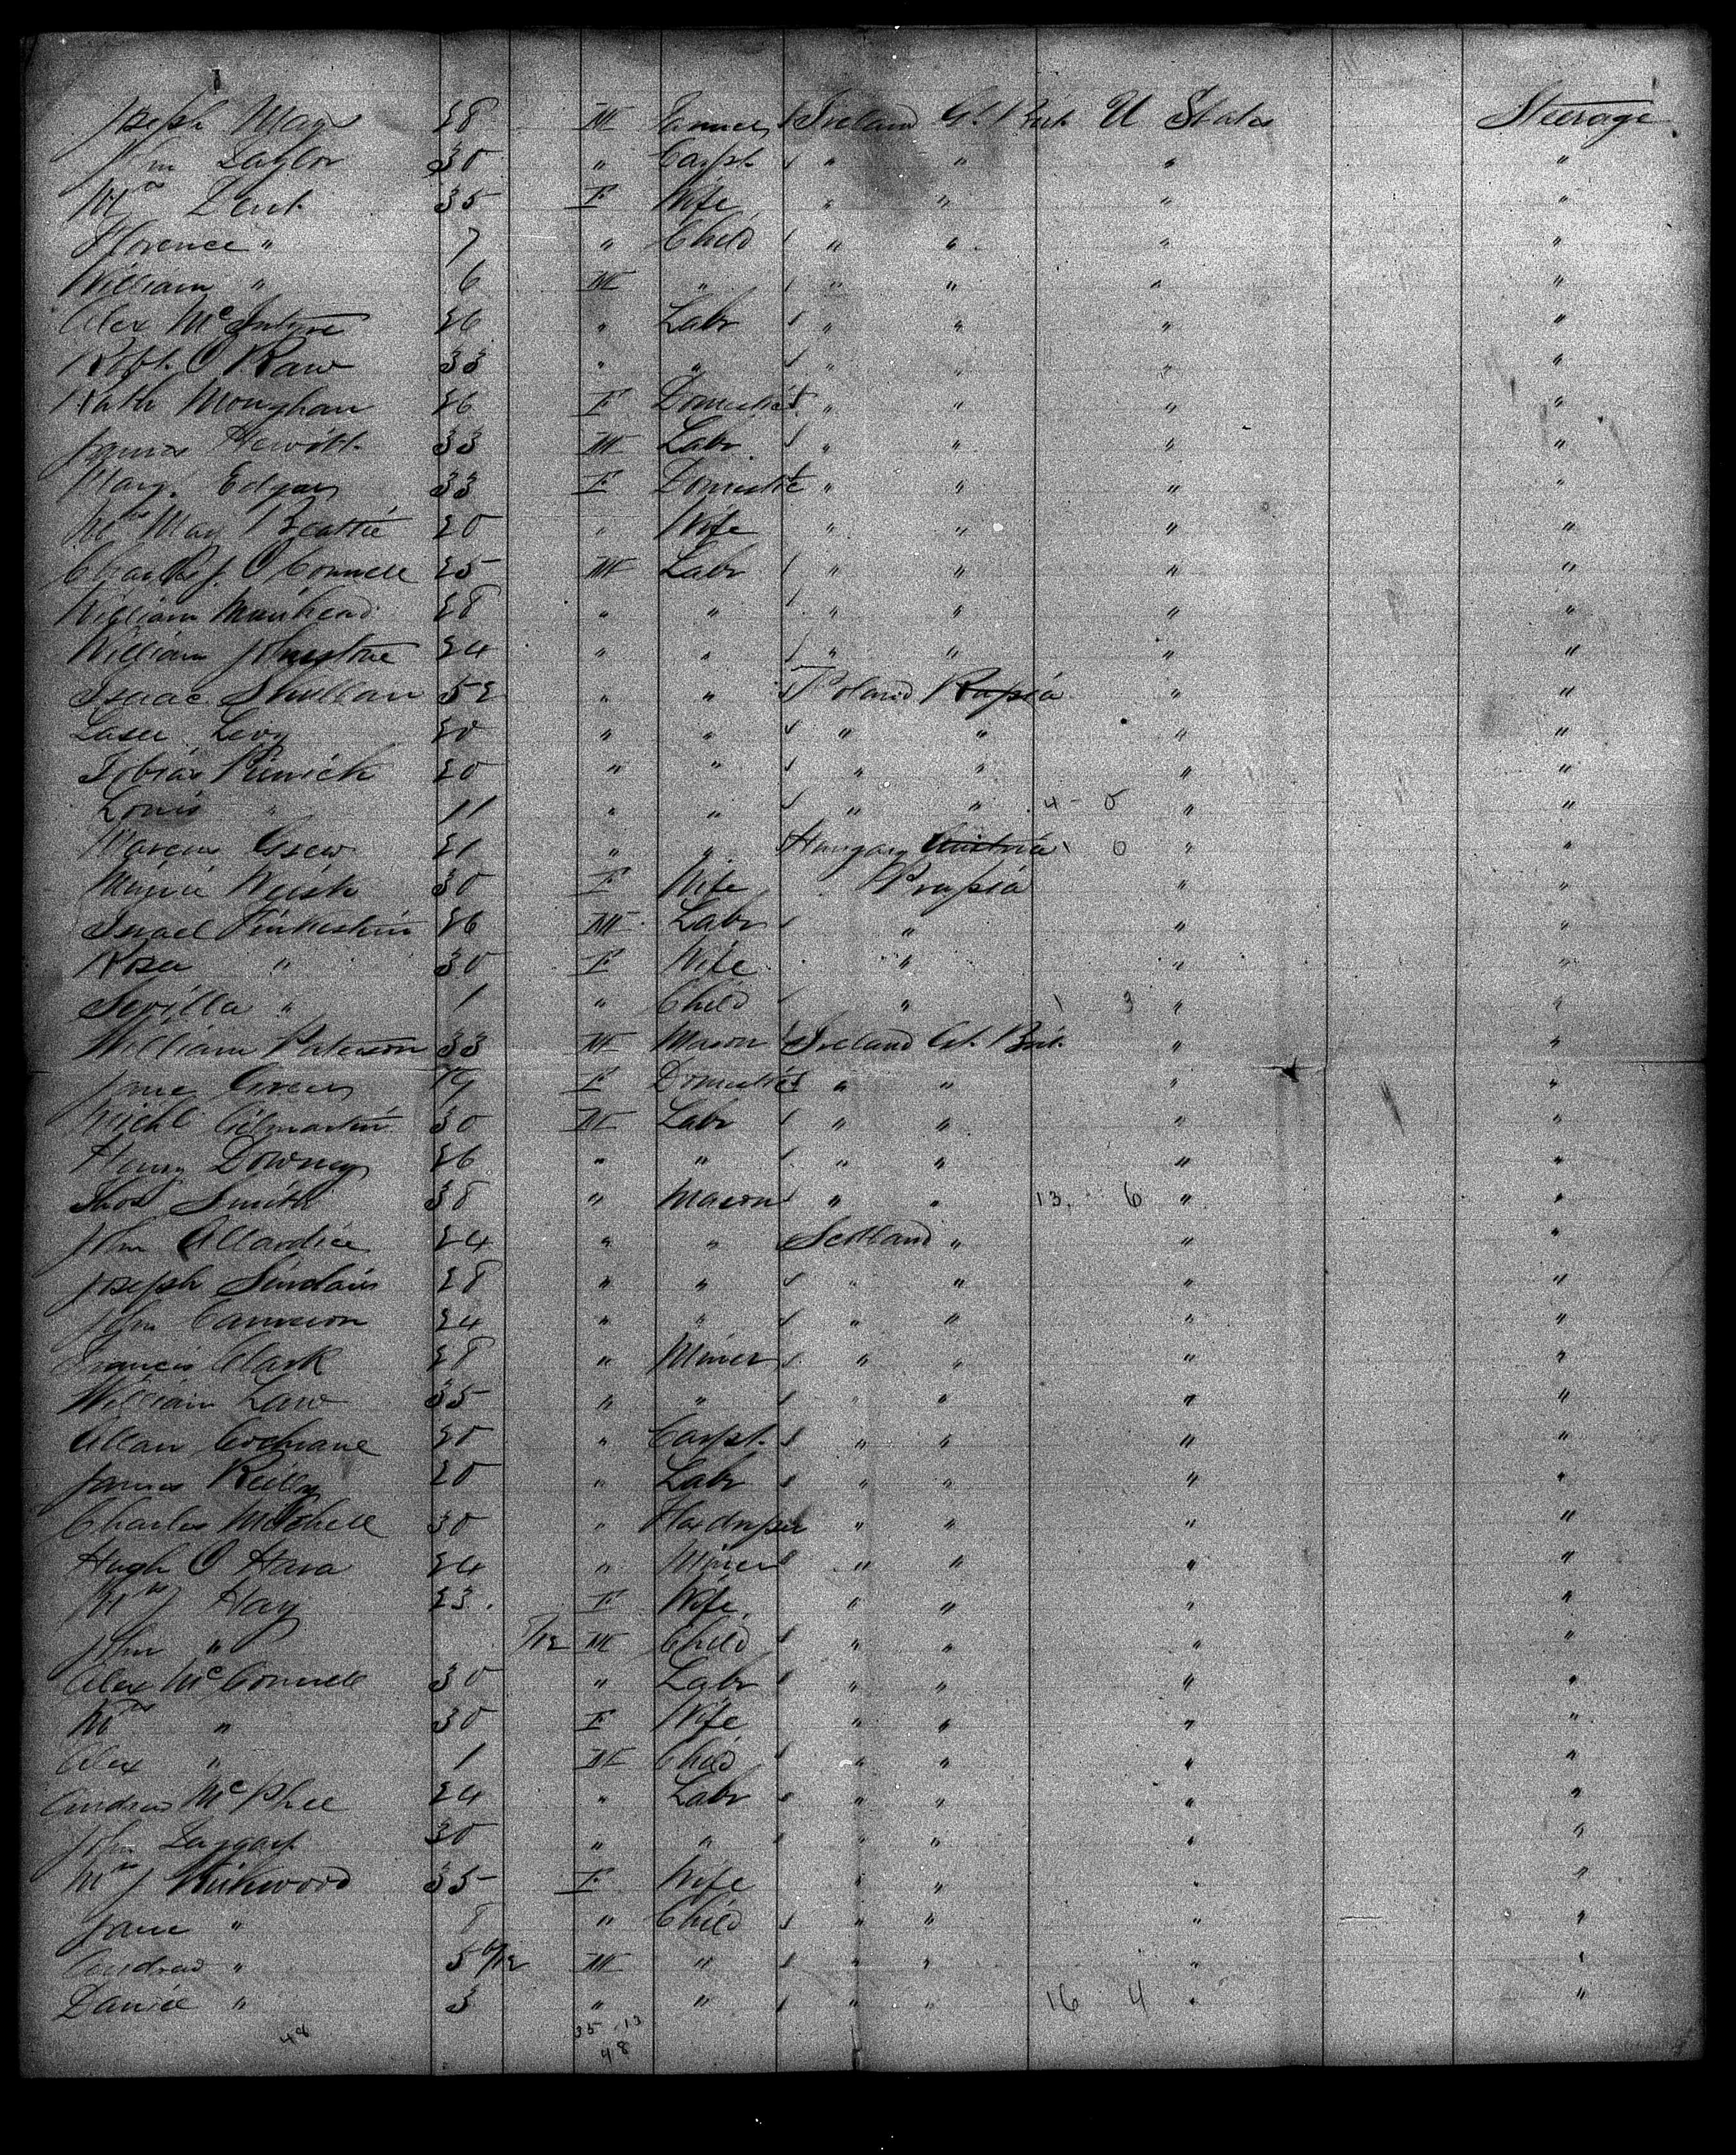 Joseph May 28 M Farmer Ireland Gt. Brit. U States Steerage
John Taylor 30 " Carpt. " " " "
Mrs Dent 35 F Wife " " " "
Florence " 7 " Child " " " "
William " 6 M " " " " "
Alex McIntyre 26 " Labr " " " "
Robt. O Raw 33 " " " " " "
Kath Monghan 26 F Domestic " " " "
James Hewitt 33 M Labr. " " " "
Mary Edgar 33 F Domestic " " " "
Mrs May Beattie 20 " Wife " " " "
Charles J. O Connell 25 M Labr " " " "
William Muirhead 28 " " " " " "
William Johnstone 24 " " " " " "
Isaac Shullan 52 " " Poland Russia " "
Laser Levy 20 " " " " " "
Tobias Pinnick 20 " " " " " "
Louis " 11 " " " " 4 - 0 " "
Marcus 21 " " Hungary Austria 1 0 " "
Minnie 30 F Wife Prussia " "
Israel Finkestein 26 M Labr " " "
Rosa " 30 F Wife " " "
Sevilla " 1 " Child " 1 3 " "
William Paterson 33 M Mason Ireland Gt. Brit. " "
Jane Green 19 F Domestic " " " "
Michl Gilmartin 30 M Labr " " " "
Henry Downey 26 " " " " " "
Thos Smith 38 " Mason " " 13. 6 " "
John Allardice 24 " " Scotland " " "
Joseph Sinclair 28 " " " " " "
John Cameron 24 " " " " " "
Francis Clark 28 " Miner " " " "
William Law 35 " " " " " "
Allan Cochrane 20 " Carpt. " " " "
James Reilly 20 " Labr " " " "
Charles Mitchell 30 " " " " "
Hugh O Hara 24 " Miner " " " "
Mrs J Hay 23. F Wife. " " " "
John " M Child " " " "
Alex McConnell 30 " Labr " " " "
Mrs " 30 F Wife " " " "
Alex " 1 M Child " " " "
Andrew McPhee 24 " Labr " " " "
John Taggart 30 " " " " " "
Mrs J Kirkwood 35 F Wife " " " "
Jane " 8 " Child " " " "
Andrew " 5 6/12 M " " " " "
Daniel " 3 " " " " 16 4 " "
48 35 . 13
48